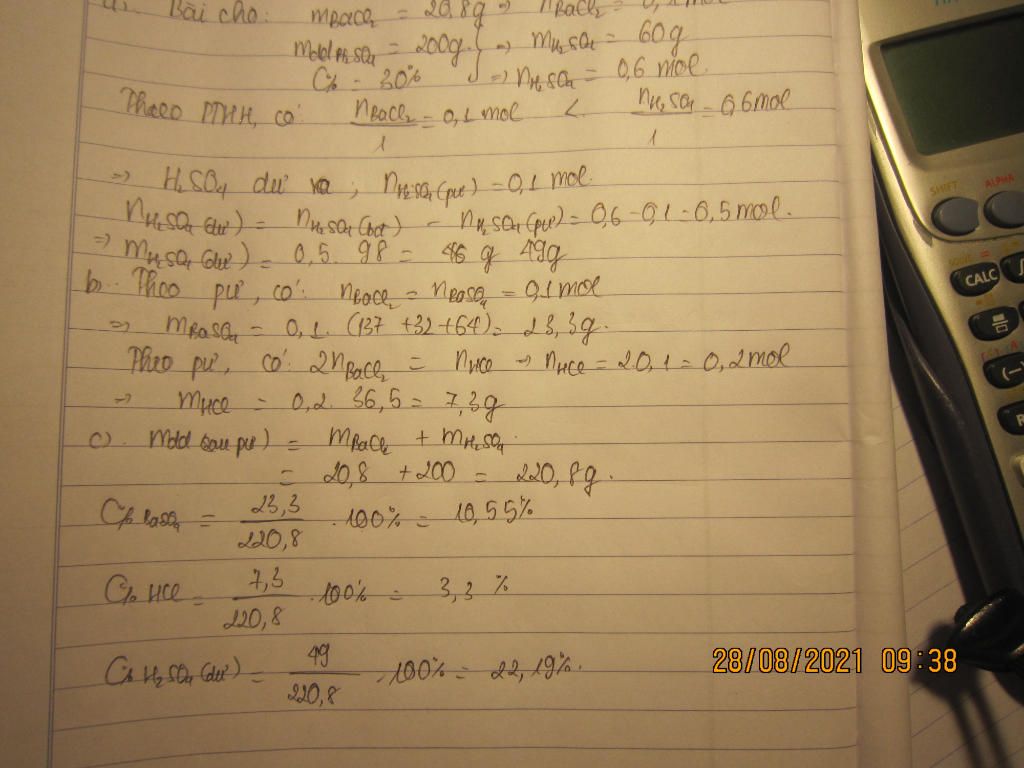 Bài cho: mBaCl₂ = 20,8g → nBaCl₂ = 0,1 mol
mdd H₂SO₄ = 200g → mH₂SO₄ = 60g
C% = 30% → nH₂SO₄ = 0,6 mol.
Theo PTHH, có: nBaCl₂/1 = 0,1 mol < nH₂SO₄/1 = 0,6mol
→ H₂SO₄ dư và; nH₂SO₄(pư) = 0,1 mol.
nH₂SO₄(dư) = nH₂SO₄(bđ) - nH₂SO₄(pư) = 0,6 - 0,1 = 0,5 mol.
→ mH₂SO₄(dư) = 0,5. 98 = 46 g 49g
b. Theo pư, có: nBaCl₂ = nBaSO₄ = 0,1 mol
→ mBaSO₄ = 0,1. (137 + 32 + 64) = 23,3g.
Theo pư, có: 2nBaCl₂ = nHCl → nHCl = 2.0,1 = 0,2 mol
→ mHCl = 0,2. 36,5 = 7,3g
c). mdd (sau pư) = mBaCl₂ + mH₂SO₄.
= 20,8 + 200 = 220,8g.
C% BaSO₄ = 23,3/220,8 . 100% = 10,55%
C% HCl = 7,3/220,8 . 100% = 3,3 %
C% H₂SO₄(dư) = 49/220,8 . 100% = 22,19%.
SHIFT ALPHA
CALC
28/08/2021 09:38